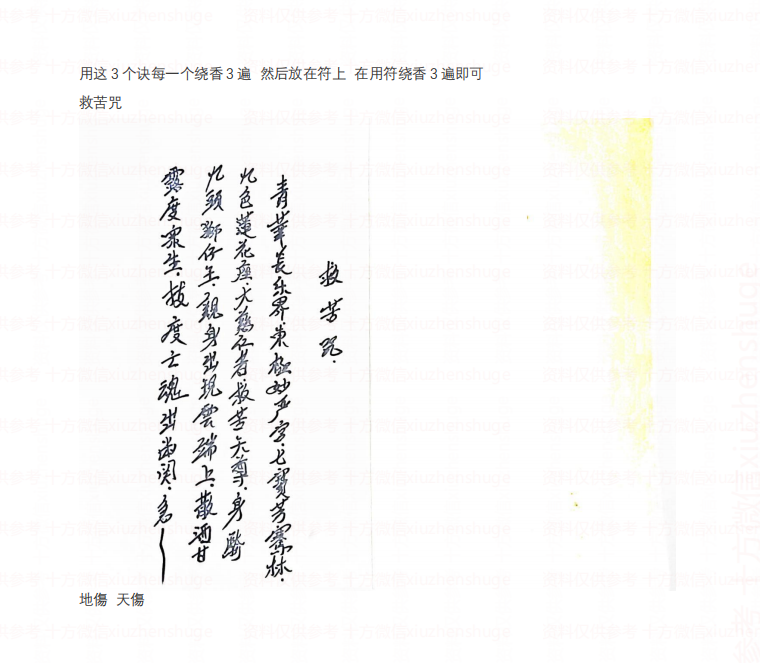 用这 3 个诀每一个绕香 3 遍 然后放在符上 在用符绕香 3 遍即可
救苦咒
救苦咒.
青華長乐界東極妙严宮.七寶芳騫林.
九色蓮花座.大慈仁者救苦天尊.身騎
九頭獅仔上.親身出現雲端上.散洒甘
露度衆生.拔度亡魂出幽関.急
地傷 天傷
资料仅供参考 十方微信xiuzhenshuge